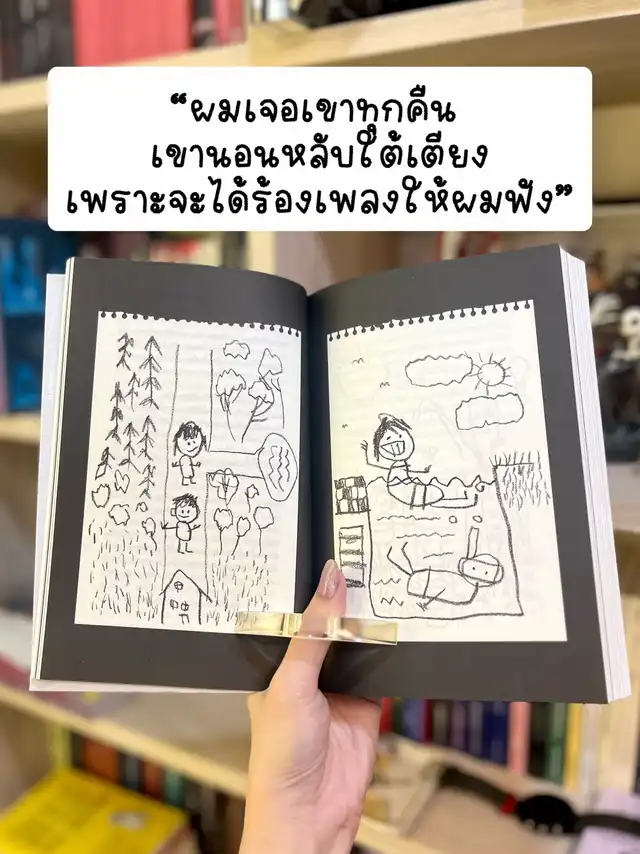 “ผมเจอเขาทุกคืน
เขานอนหลับใต้เตียง
เพราะจะได้ร้องเพลงให้ผมฟัง”